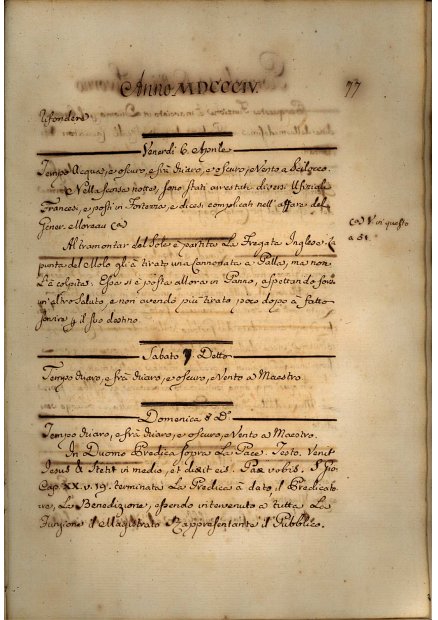 Anno MDCCCIV.
77
rifondere
Venerdì 6. Aprile
Tempo Acqua, e oscuro, e frà chiaro, e oscuro, e Vento a Scilocco.
Nella scorsa notte, sono stati arrestati diversi Ufiziali
Francesi, e posti in Fortezza, e dicesi complicati nell'affare del
Gener. Moreau (a)
(a) V. in questo
a 81.
Al tramontar del Sole è partita La Fregata Inglese. La
punta del Molo gli à tirato una Cannonata a Palla, ma non
L'à colpita: Essa si è posta allora in Panno, aspettando
un'altro saluto, e non avendo più tirato, poco dopo à fatto
il suo destino.
Sabato 7. Detto
Tempo chiaro, e frà chiaro, e oscuro, e Vento a Maestro.
Domenica 8 Do.
Tempo chiaro, e frà chiaro, e oscuro, e Vento a Maestro.
In Duomo Predica sopra La Pace. Testo. Venit
Jesus & Stetit in medio, et dixit eis. Pax vobis. S. Gio:
Cap. XX. v. 19. terminata La Predica à dato, il Predicato-
re, La Benedizione, essendo intervenuto a tutta La
Funzione il Magistrato Rappresentante il Pubblico.